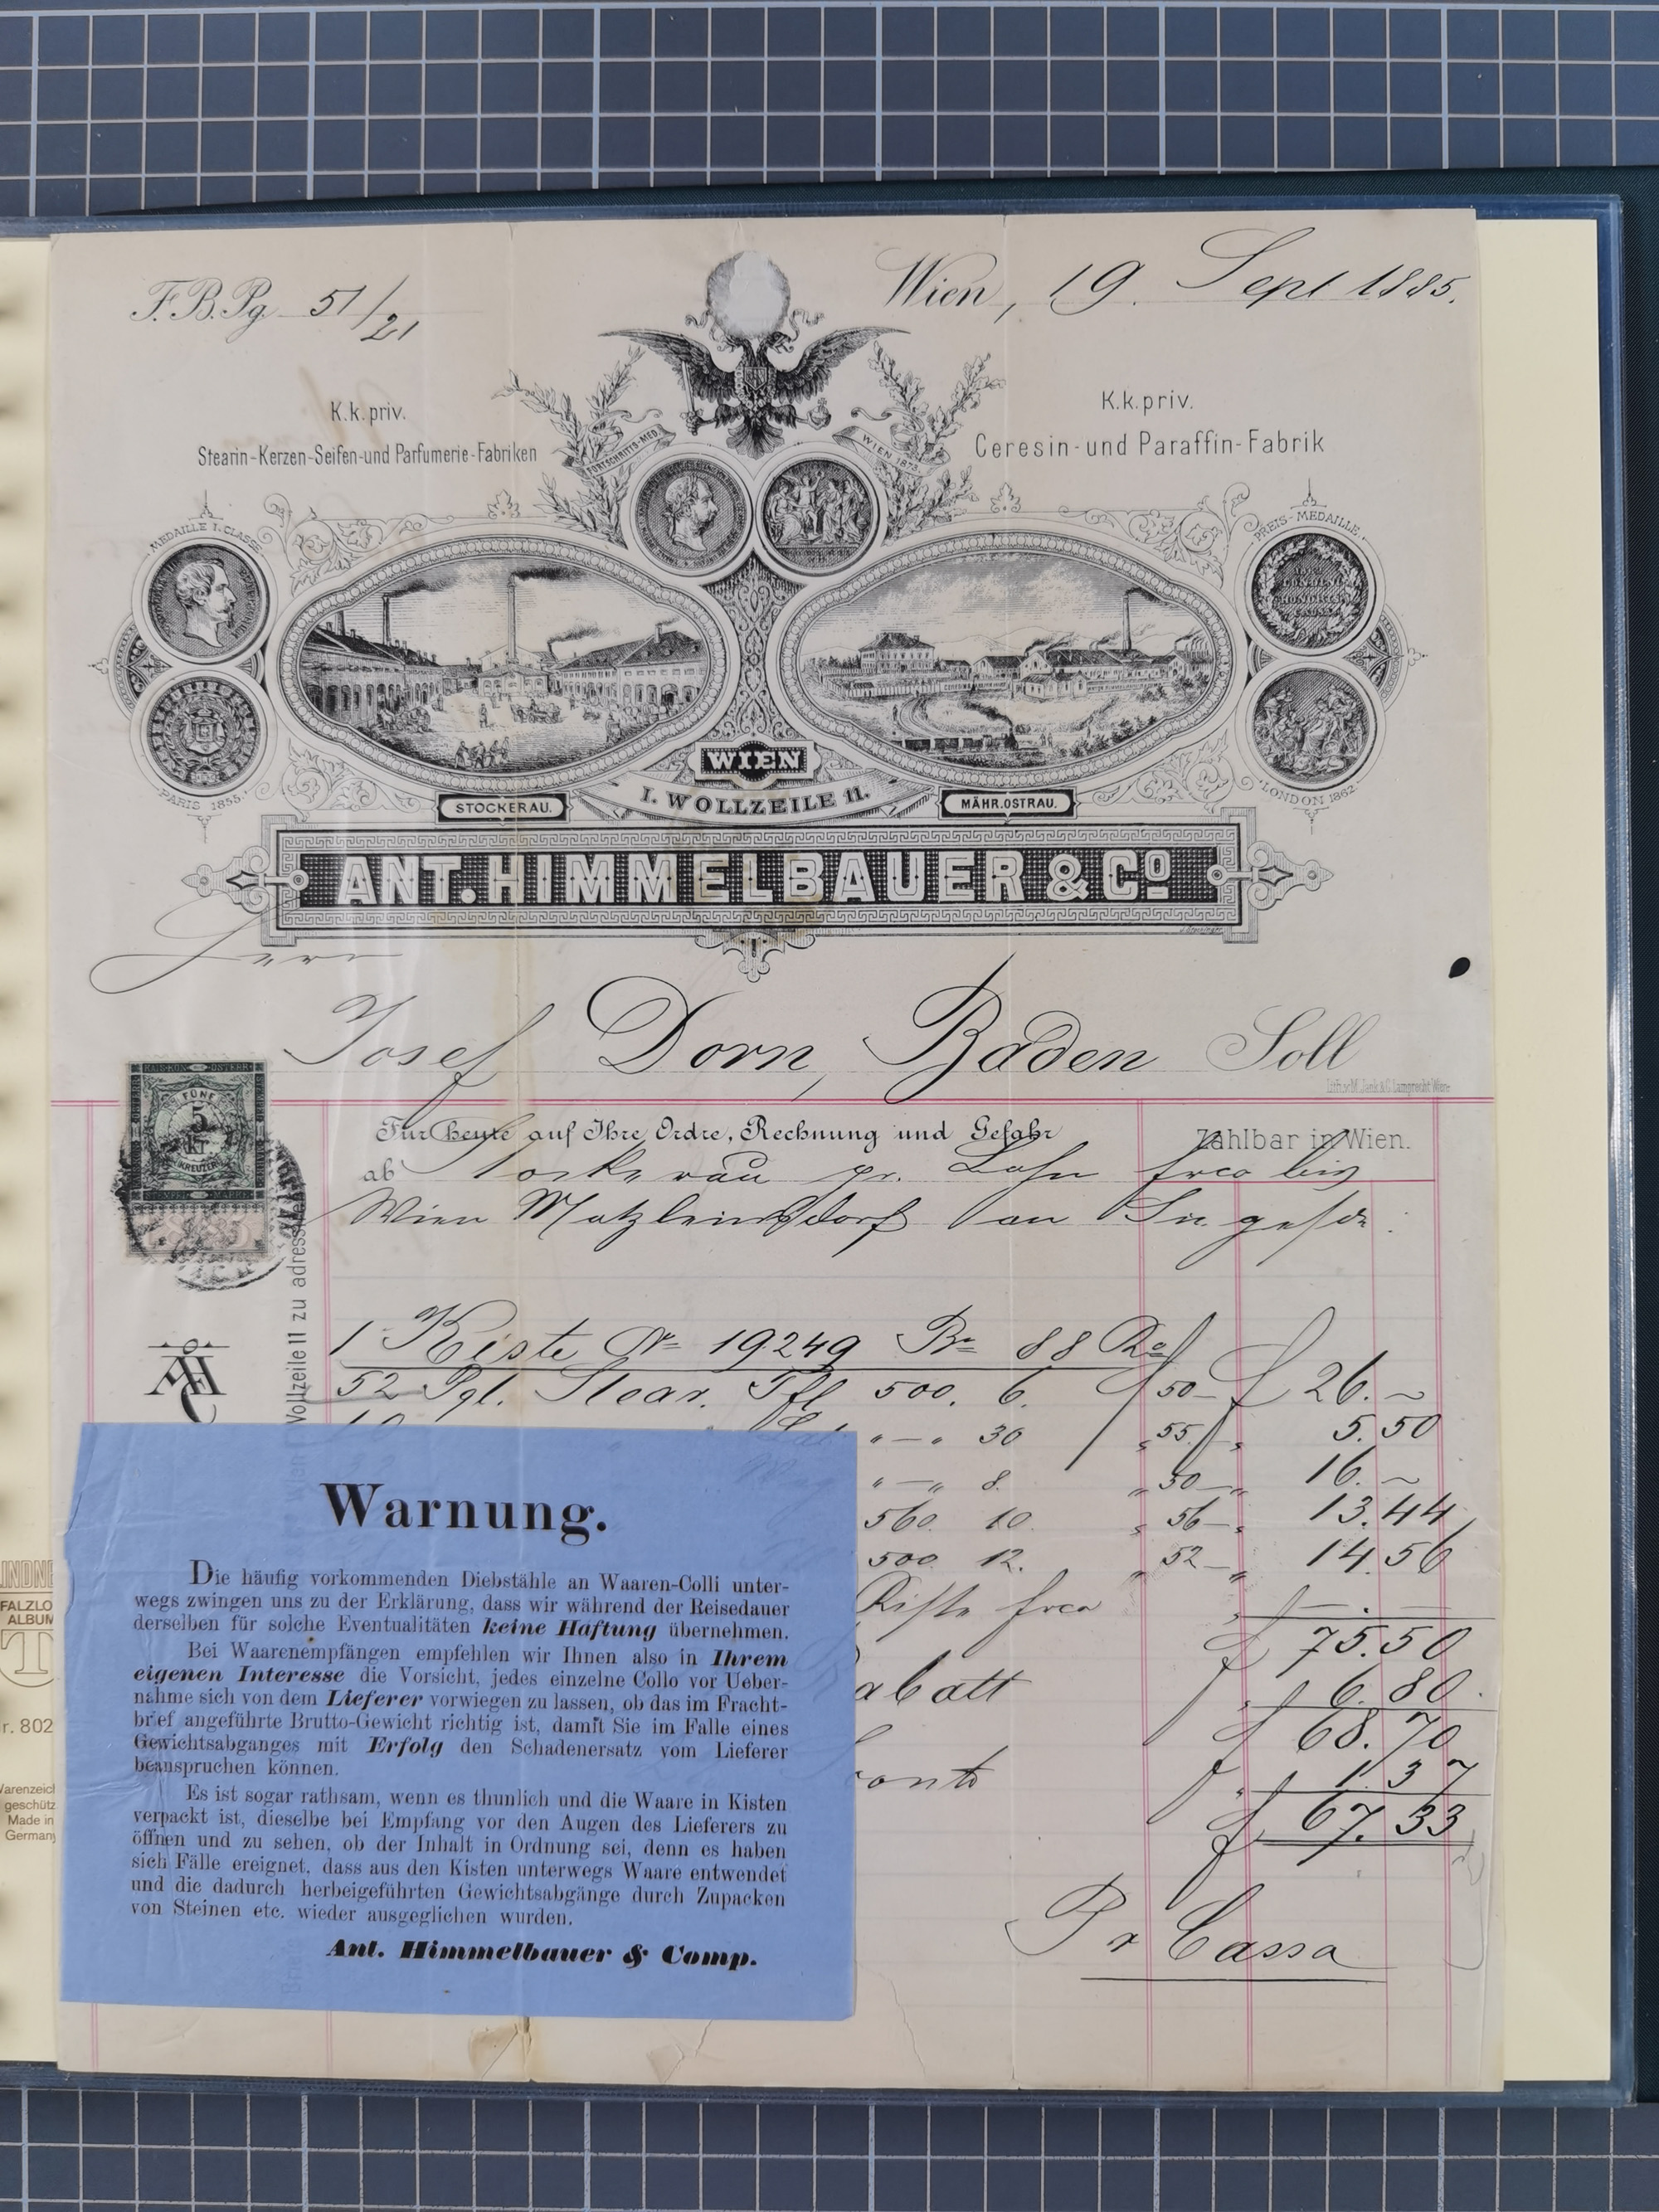 F.B.Pg 51/21
Wien, 19. Sept 1885.
K.k.priv.
Stearin-Kerzen-Seifen-und Parfumerie-Fabriken
K.k.priv.
Ceresin-und Paraffin-Fabrik
FORTSCHRITTS-MED.
WIEN 1873.
MEDAILLE I. CLASSE
PARIS 1855.
PREIS-MEDAILLE
LONDON 1862.
WIEN
I. WOLLZEILE 11.
STOCKERAU.
MÄHR.OSTRAU.
ANT. HIMMELBAUER & Co
Herrn
Josef Dorn, Baden Soll
FÜNF
5
Kr.
KREUZER
Für heute auf Ihre Ordre, Rechnung und Gefahr
Zahlbar in Wien.
ab Stockerau pr. Bahn frco bis
Wien Matzleinsdorf an Sie
Wollzeile 11 zu adress
1 Kiste No 19249 Bo 88 Ko
52 Pgl. Stear. Tfl 500. 6. f 50 f 26.~
" — " 30 " 55 " 5.50
" — " 8. " 50 " 16.~
560. 10. " 56 " 13.44
500. 12. " 52 " 14.56
Kiste frco
f 75.50
abatt " 6.80.
f 68.70
conto " 1.37
f 67.33
Pr Cassa
Warnung.
Die häufig vorkommenden Diebstähle an Waaren-Colli unter-
wegs zwingen uns zu der Erklärung, dass wir während der Reisedauer
derselben für solche Eventualitäten keine Haftung übernehmen.
Bei Waarenempfängen empfehlen wir Ihnen also in Ihrem
eigenen Interesse die Vorsicht, jedes einzelne Collo vor Ueber-
nahme sich von dem Lieferer vorwiegen zu lassen, ob das im Fracht-
brief angeführte Brutto-Gewicht richtig ist, damit Sie im Falle eines
Gewichtsabganges mit Erfolg den Schadenersatz vom Lieferer
beanspruchen können.
Es ist sogar rathsam, wenn es thunlich und die Waare in Kisten
verpackt ist, dieselbe bei Empfang vor den Augen des Lieferers zu
öffnen und zu sehen, ob der Inhalt in Ordnung sei, denn es haben
sich Fälle ereignet, dass aus den Kisten unterwegs Waare entwendet
und die dadurch herbeigeführten Gewichtsabgänge durch Zupacken
von Steinen etc. wieder ausgeglichen wurden.
Ant. Himmelbauer & Comp.
LINDNE
FALZLO
ALBUM
T
r. 802
arenzeich
geschütz
Made in
Germany